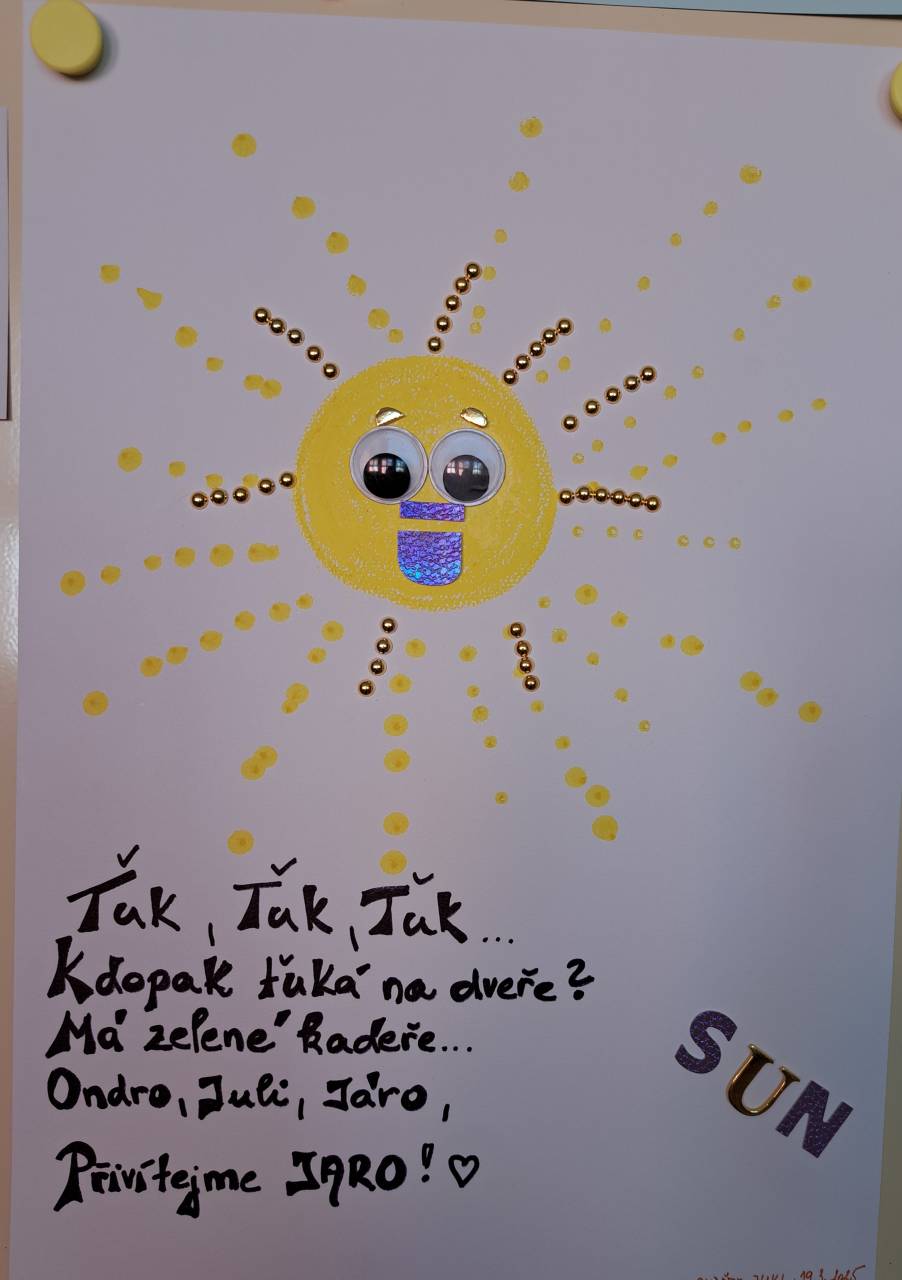 Ťuk, Ťuk, Ťuk...
Kdopak ťuká na dveře?
Má zelené kadeře...
Ondro, Juli, Járo,
Přivítejme JARO! ♡
SUN